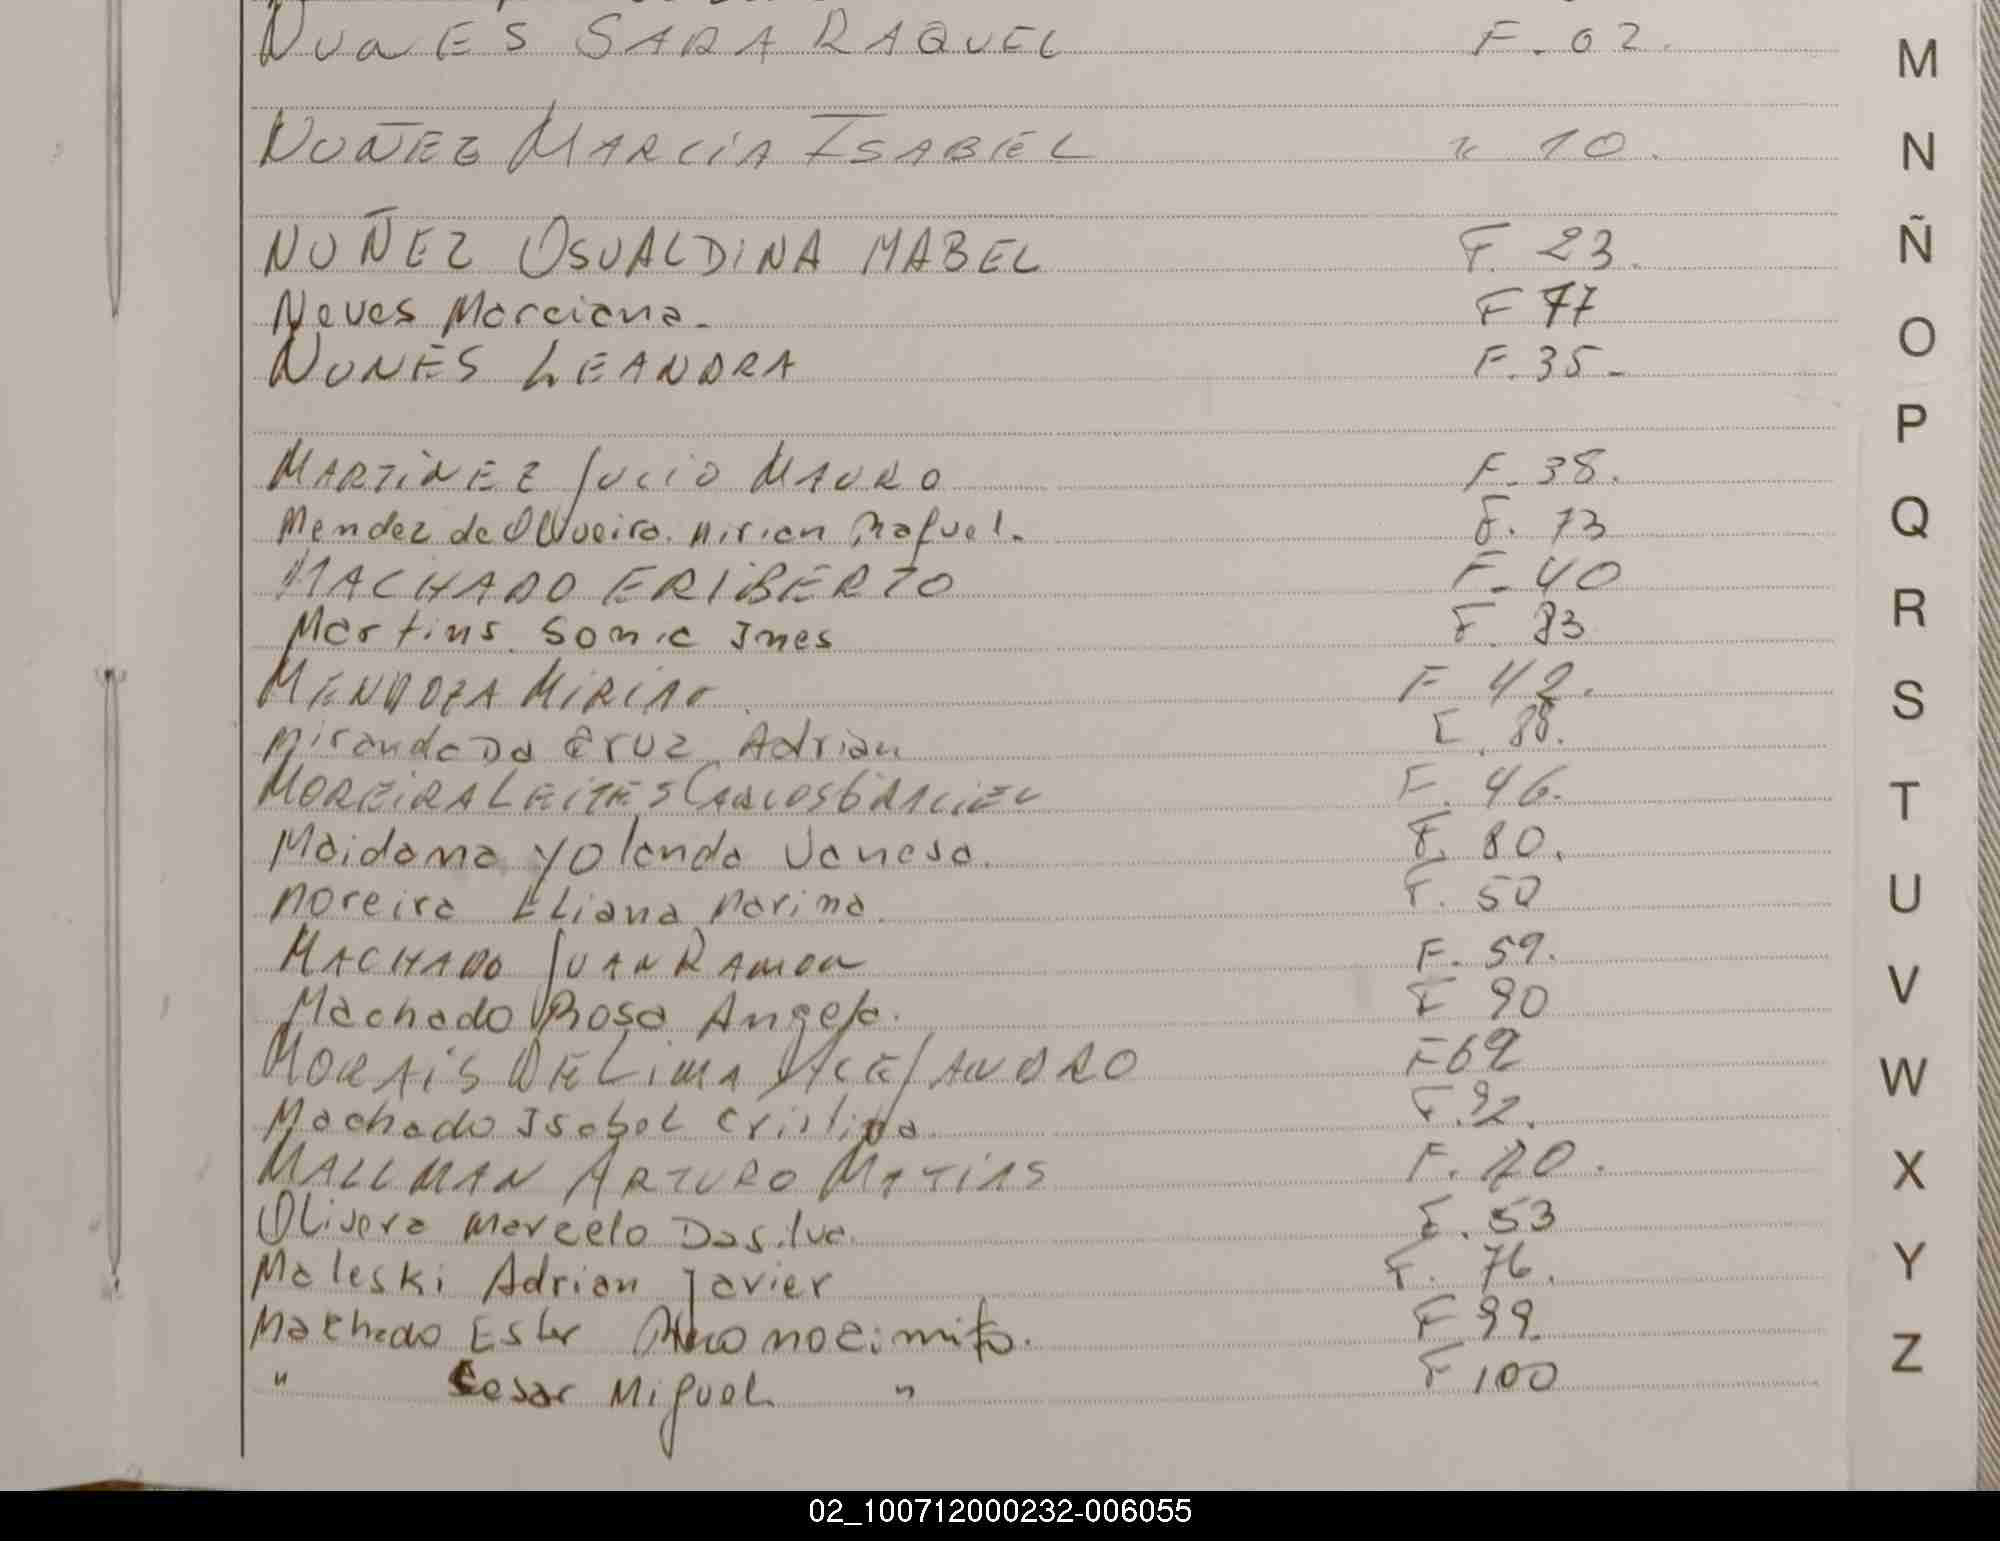 NUNES SARA RAQUEL F. 02.
NUÑEZ MARCIA ISABEL " 10.
NUÑEZ OSVALDINA MABEL F. 23.
Neves Marciana. F 77
NUNES LEANDRA F. 35-
MARTINEZ JULIO MAURO F. 38.
Mendez de Oliveira. Mirian Raquel. F. 73
MACHADO ERIBERTO F. 40
Martins Sonia Ines F. 83
MENDOZA F 42.
Miranda Da Cruz Adrian F. 88.
MOREIRA LEITES CARLOS GABRIEL F. 46.
Maidama Yolanda Vanesa. F. 80.
Moreira Eliana Marina. F. 50
MACHADO JUAN RAMON F. 59.
Machado Rosa Angela. F 90
MORAIS DE LIMA ALEJANDRO F 62
Machado Isabel Cristina. F. 92.
MALLMAN ARTURO MATIAS F. 70.
Olivera Marcelo Dasilva. F. 53
Maleski Adrian Javier F. 76.
Machado Ester F 99.
" Cesar Miguel " F 100
M
N
Ñ
O
P
Q
R
S
T
U
V
W
X
Y
Z
02_100712000232-006055